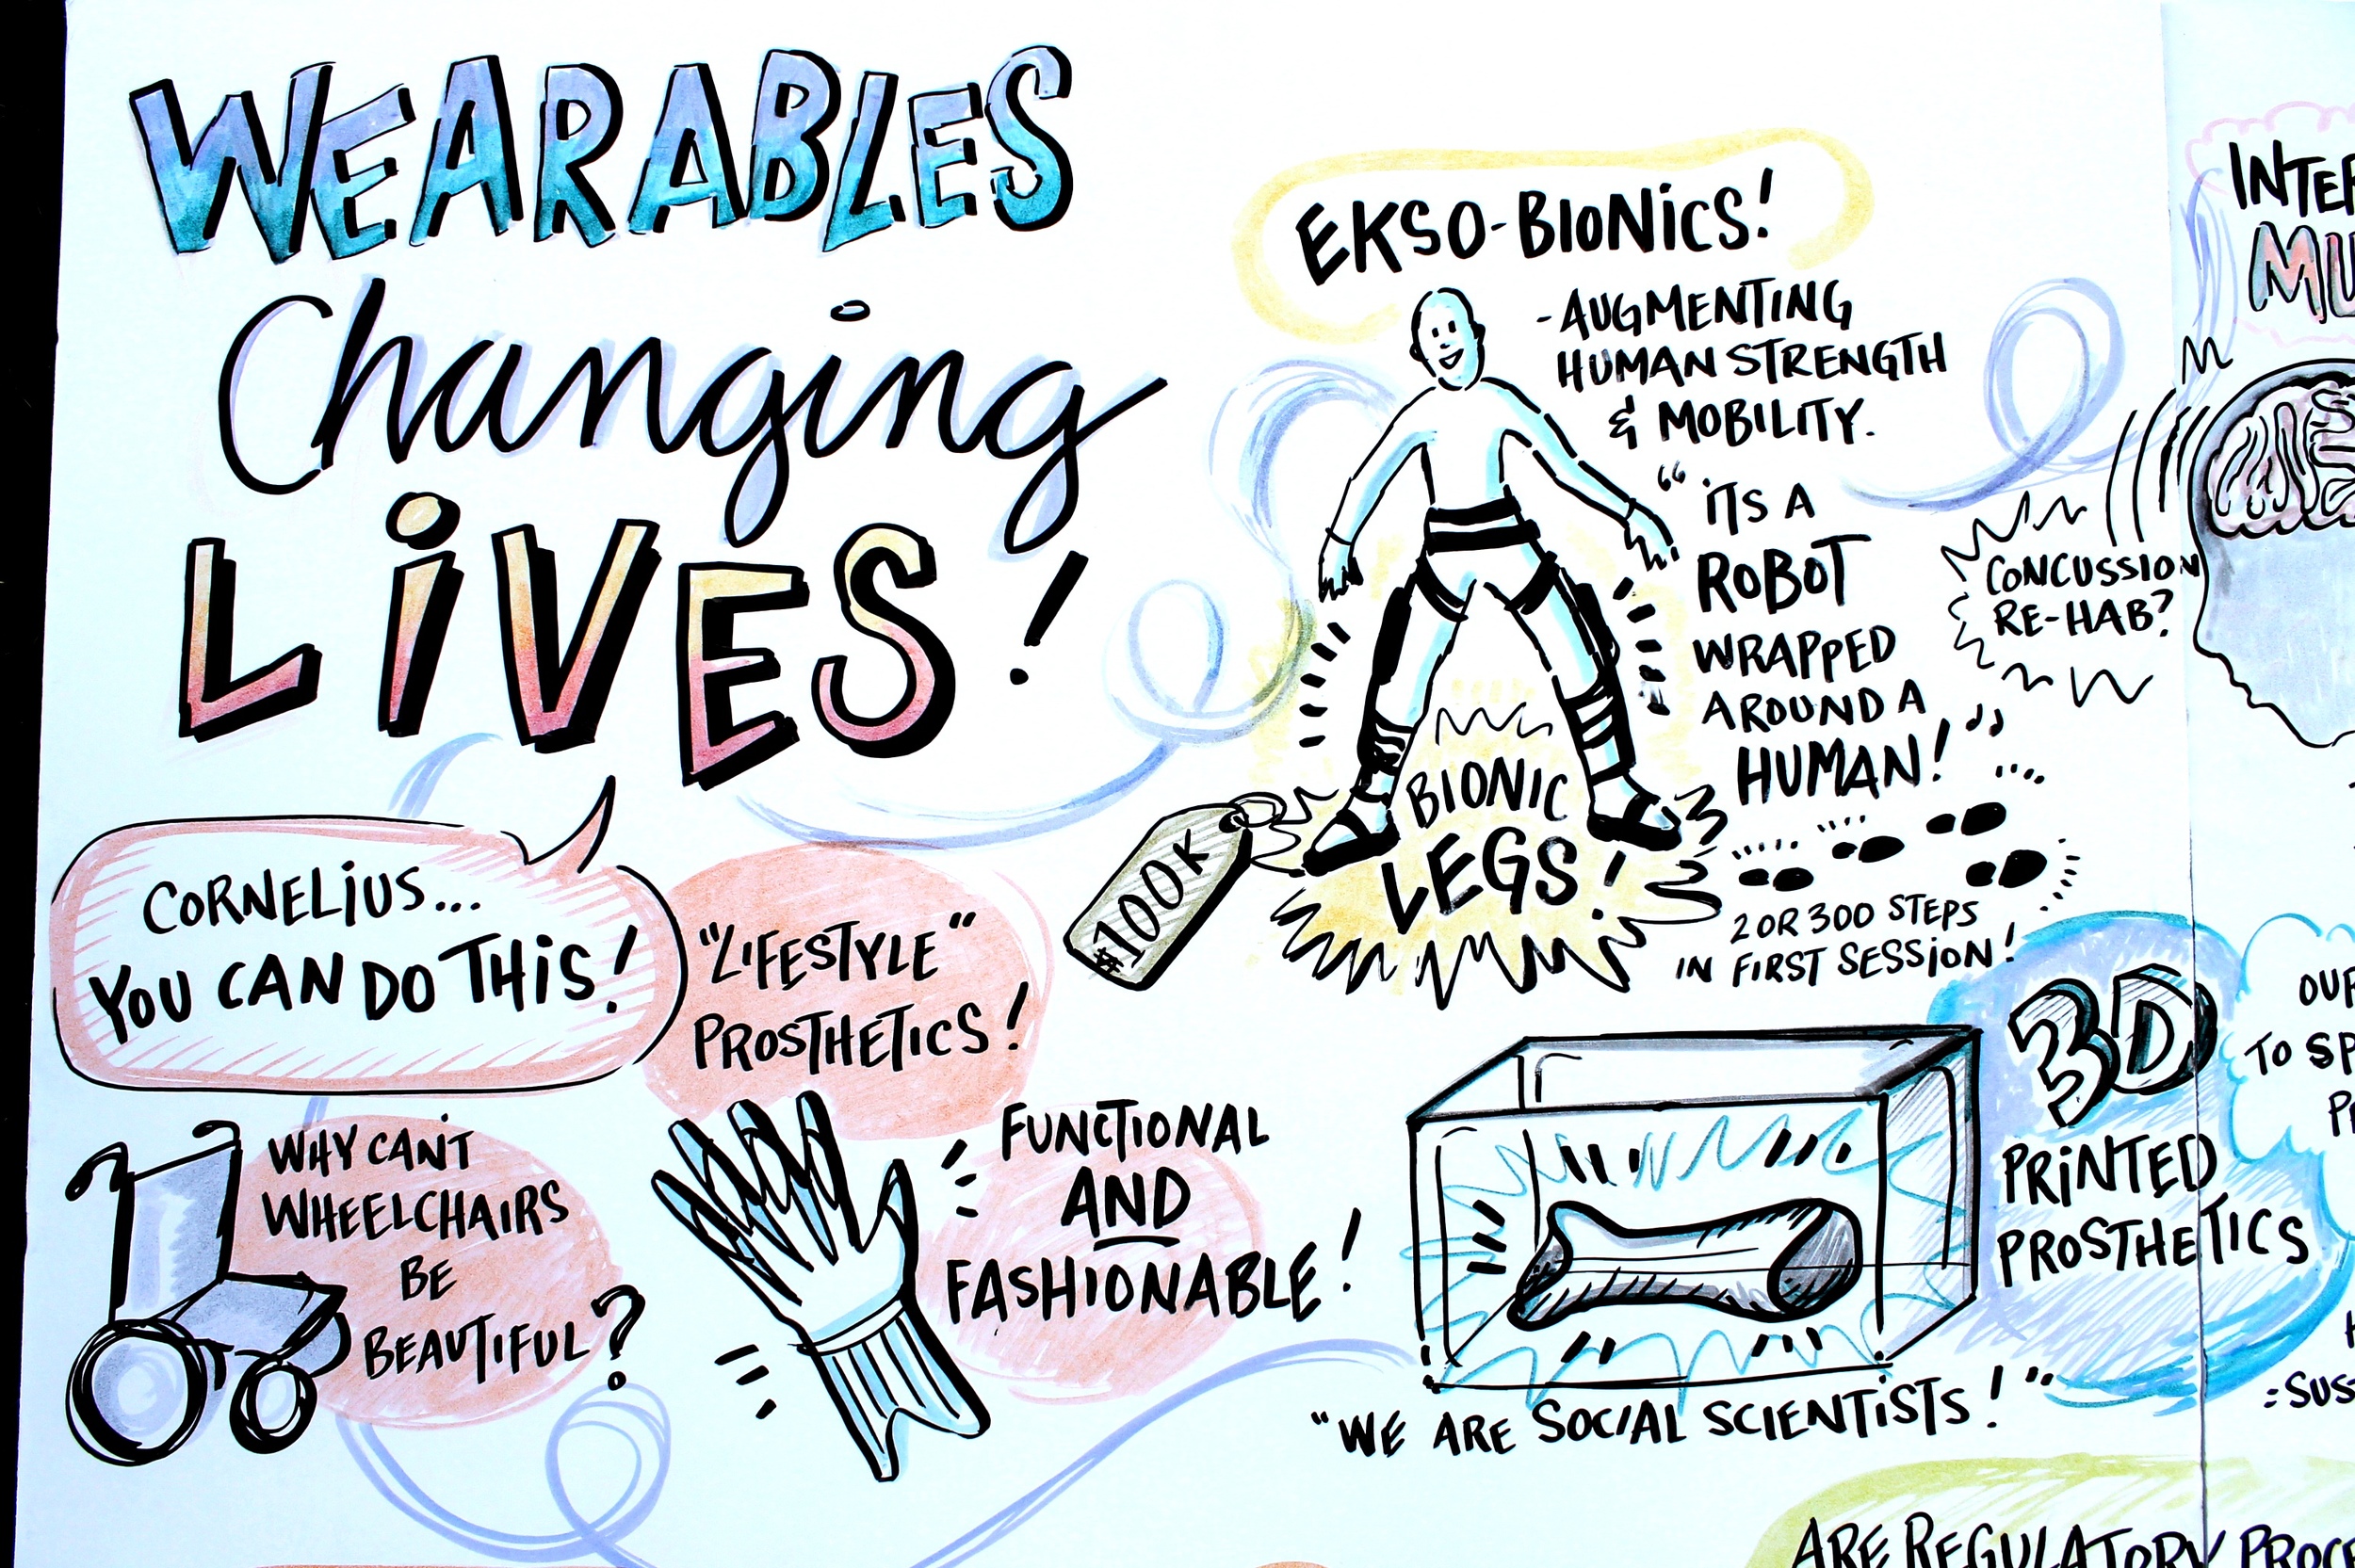 WEARABLES
Changing
LiVES!
EKSO-BIONiCS!
-AUGMENTING
HUMAN STRENGTH
& MOBILITY.
"iTS A
ROBOT
WRAPPED
AROUND A
HUMAN!"
BIONIC
LEGS!
$100K
2 OR 300 STEPS
IN FIRST SESSION!
CONCUSSION
RE-HAB?
CORNELiUS...
YOU CAN DO THiS!
"LIFESTYLE"
PROSTHETICS!
WHY CAN'T
WHEELCHAIRS
BE
BEAUTIFUL?
FUNCTIONAL
AND
FASHIONABLE!
3D
PRiNTED
PROSTHETICS
"WE ARE SOCIAL SCIENTiSTS!"
TO
ARE REGULATORY